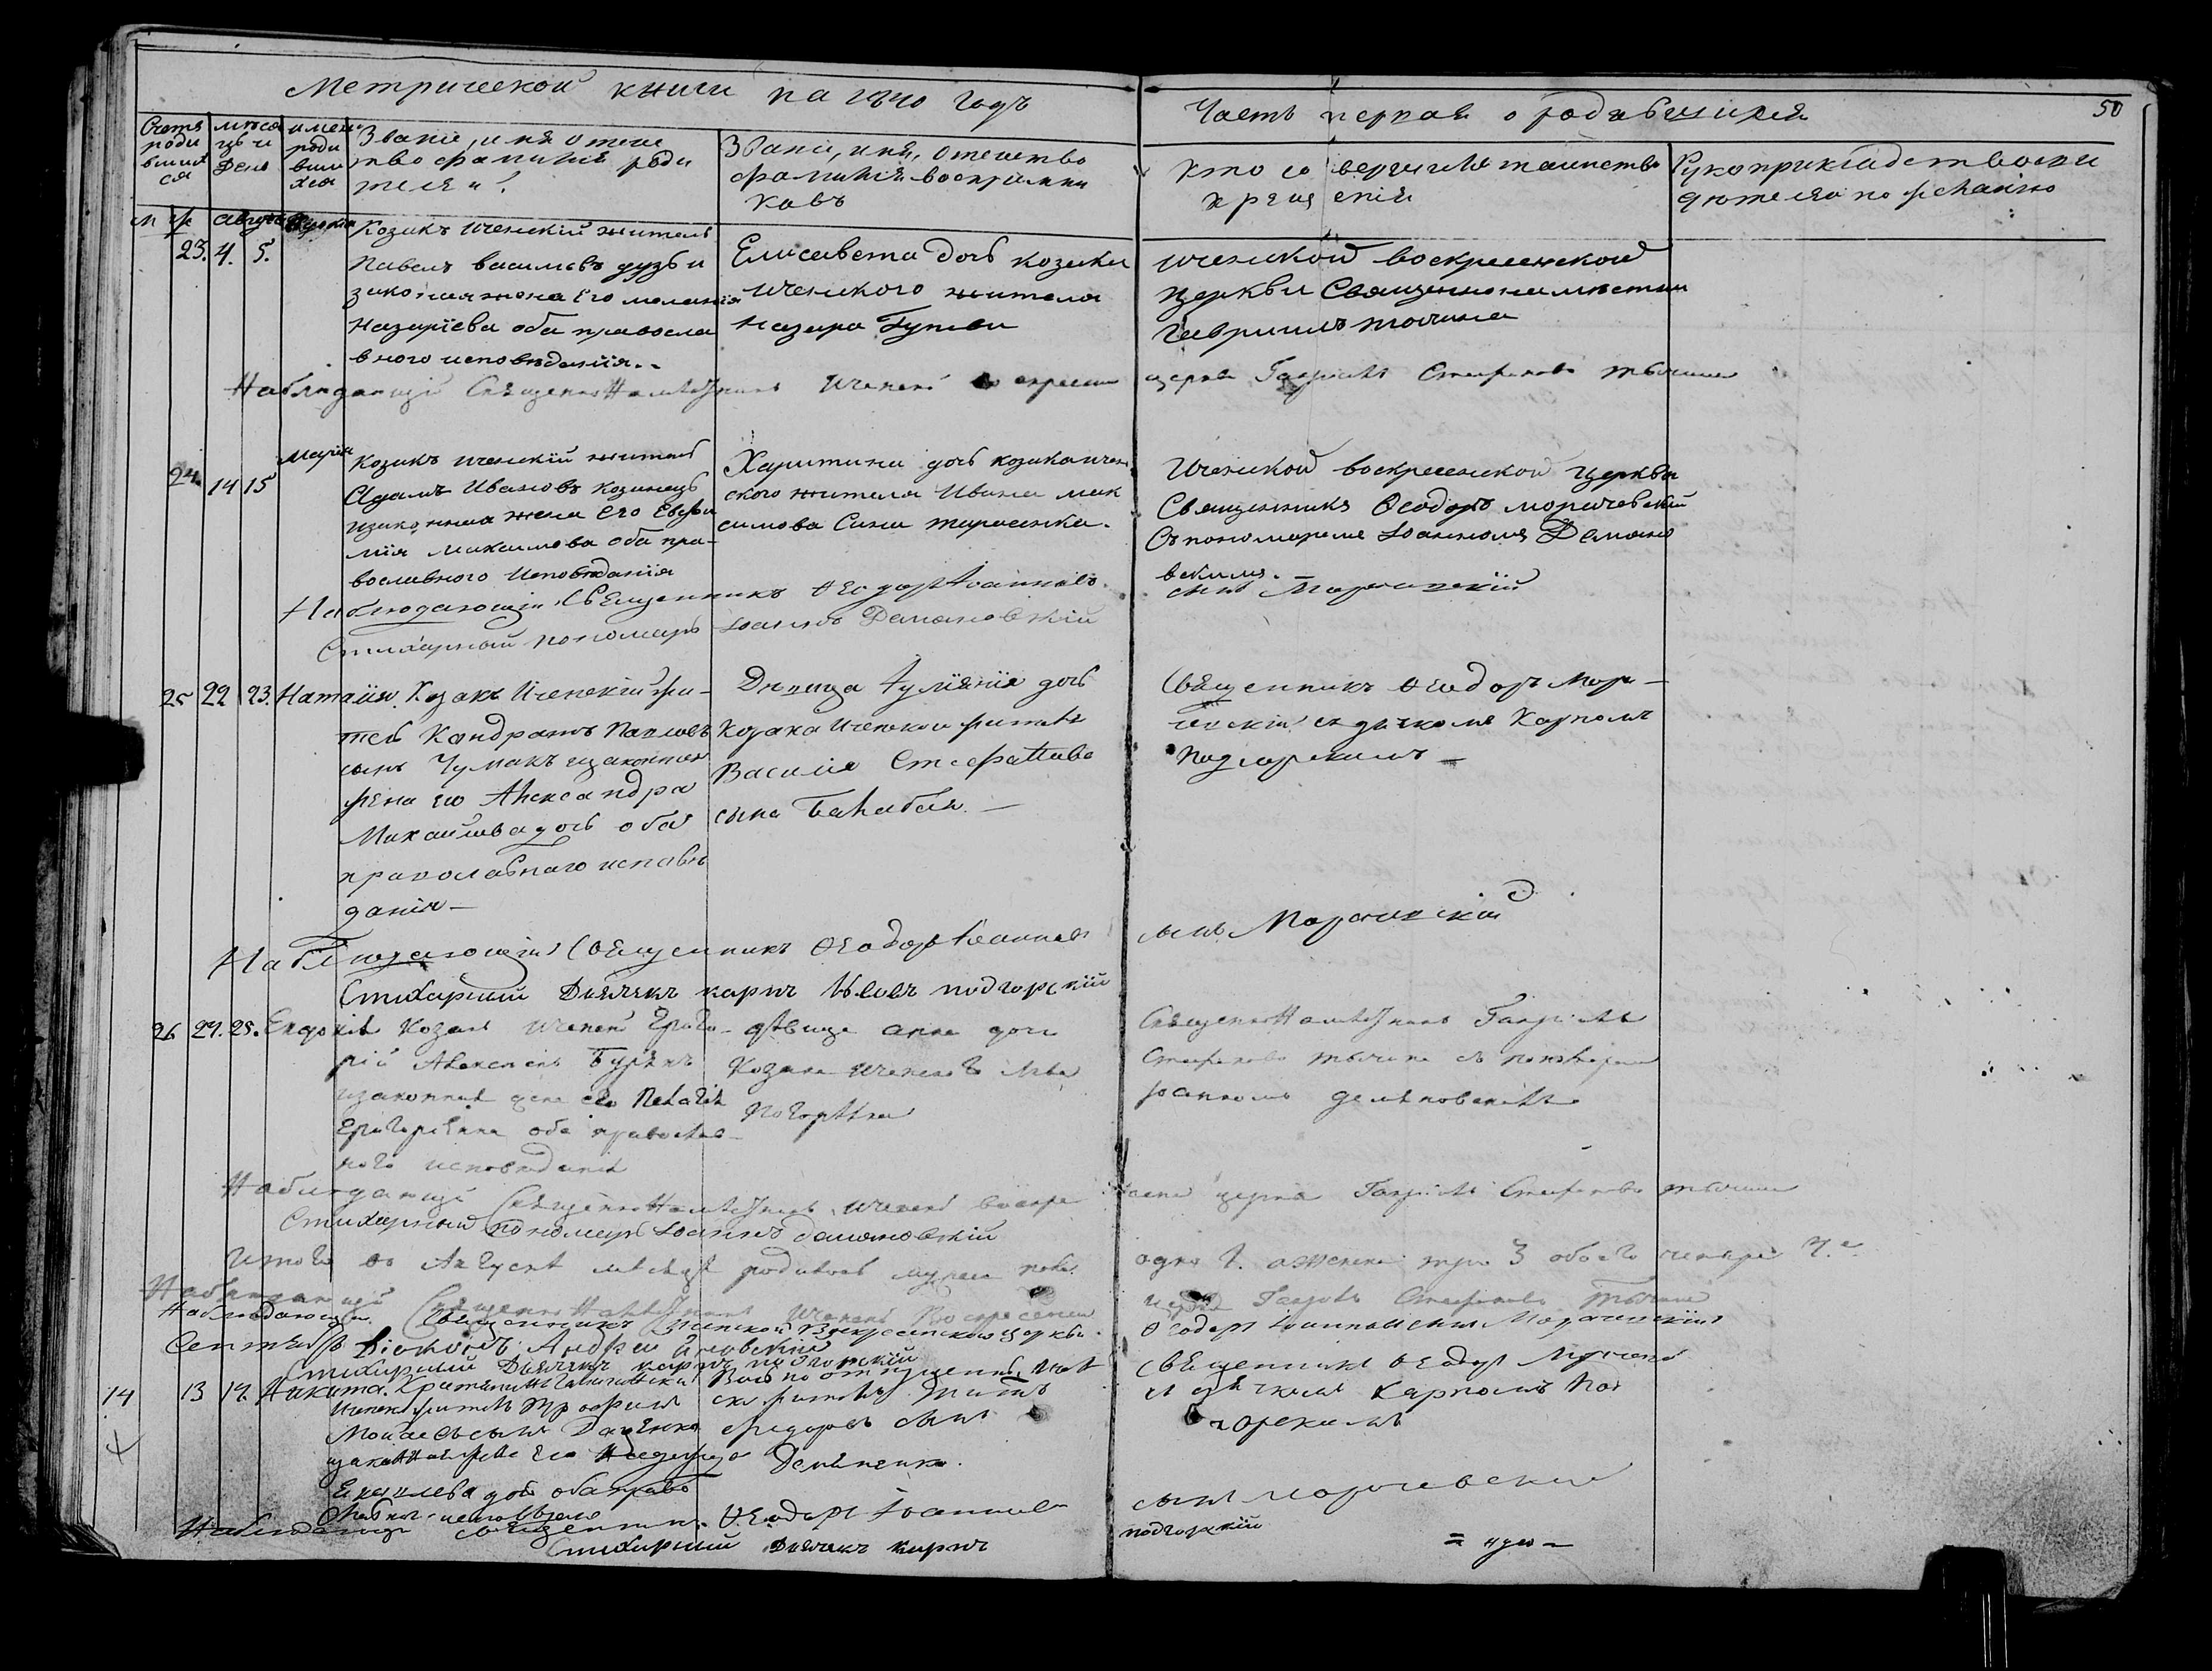 Метрической книги на 1840 годъ
Часть первая о родившихся
50
Счетъ родившихся
мѣсяцъ и день
имена родившихся
Званіе, имя отечество фамилія родителей.
Званіе, имя, отечество фамилія воспріемниковъ
кто совершилъ таинство крещенія
Рукоприкладство свидѣтелей по желанію
м ж Августъ
23. 4. 5.
Козакъ иченскій житель
Павелъ васильевъ
законная жена его меланія
Назаріева оба правосла
вного исповѣданія.
Елисавета дочь козака
иченского жителя
Назара
иченской воскресенской
церкви Священнонамѣстникъ
Гавріилъ
Наблюдающій Священнонамѣстникъ Иченской
церкви Гавріилъ Стефановъ
24 14 15 Марія
Козакъ иченскій житель
Адамъ Ивановъ козинецъ
изаконная жена его Евфи
мія Максимова оба пра-
вославного исповѣданія
Харитина дочь козака ичен
ского жителя Ивана мак
симова Сина тарасенка.
Иченской воскресенской церкви
Священникъ Ѳеодоръ морачевскій
Съ пономаремъ Іоанномъ Демяно
вскимъ.
Наблюдающій Священникъ Ѳеодоръ Іоанновъ
сынъ Морачевскій
Стихарный пономарь Іоаннъ Демяновскій
25 22 23. Наталія.
Козакъ Иченскій жи-
тель Кондратъ Павловъ
сынъ Чумакъ изаконная
жена его Александра
Михайлова дочь оба
православнаго исповѣ
данія—
Дѣвица Іуліянія дочь
Козака Иченскаго жителя
Василія Стефанова
сына Балабая.—
Священникъ Ѳеодоръ Мора-
чевскій съ дячкомъ Карпомъ
Подгорскимъ—
Наблюдающій Священникъ Ѳеодоръ Іоанновъ
сынъ Морачевскій
Стихарный Дьячекъ карпъ подгорскій
26 27. 28. Евдокія
Козакъ иченскій Григо-
рій Алексеевъ
изаконная жена его Пелагія
Григоріевна оба православ-
ного исповѣданія
дѣвица анна дочь
Козака иченского
Священнонамѣстникъ Гавріилъ
Стефановъ съ пономаремъ
Іоанномъ демяновскимъ
Наблюдающій Священнонамѣстникъ иченской воскре
сенской церкви Гавріилъ Стефановъ
Стихарный пономарь Іоаннъ Демяновскій
Итого въ Августѣ мѣсяцѣ родилось мужеска пола
одно 1. аженска три 3 обоего четыре 4.
Наблюдающій Священнонамѣстникъ Иченской Воскресенской
церкви Гавріилъ Стефановъ
Наблюдающій Священникъ Иченской Воскресенской церкви
Ѳеодоръ Іоанновъ сынъ Морачевскій
Сентябрь Діяконъ Андрей
Стихарный Дьячекъ карпъ подгорскій
14 13 14. Никита.
Иченск житель Трофимъ
Моисеевъ сынъ
изаконная жена его
дочь оба право
славнаго исповѣданія
житель Титъ
Федоровъ сынъ
Демяненко.
Священникъ Ѳеодоръ Морачевскій
и дячкомъ Карпомъ Под
горскимъ
Наблюдающій священникъ Ѳеодоръ Іоанновъ
сынъ морачевскій
Стихарный Дьячекъ карпъ
подгорскій